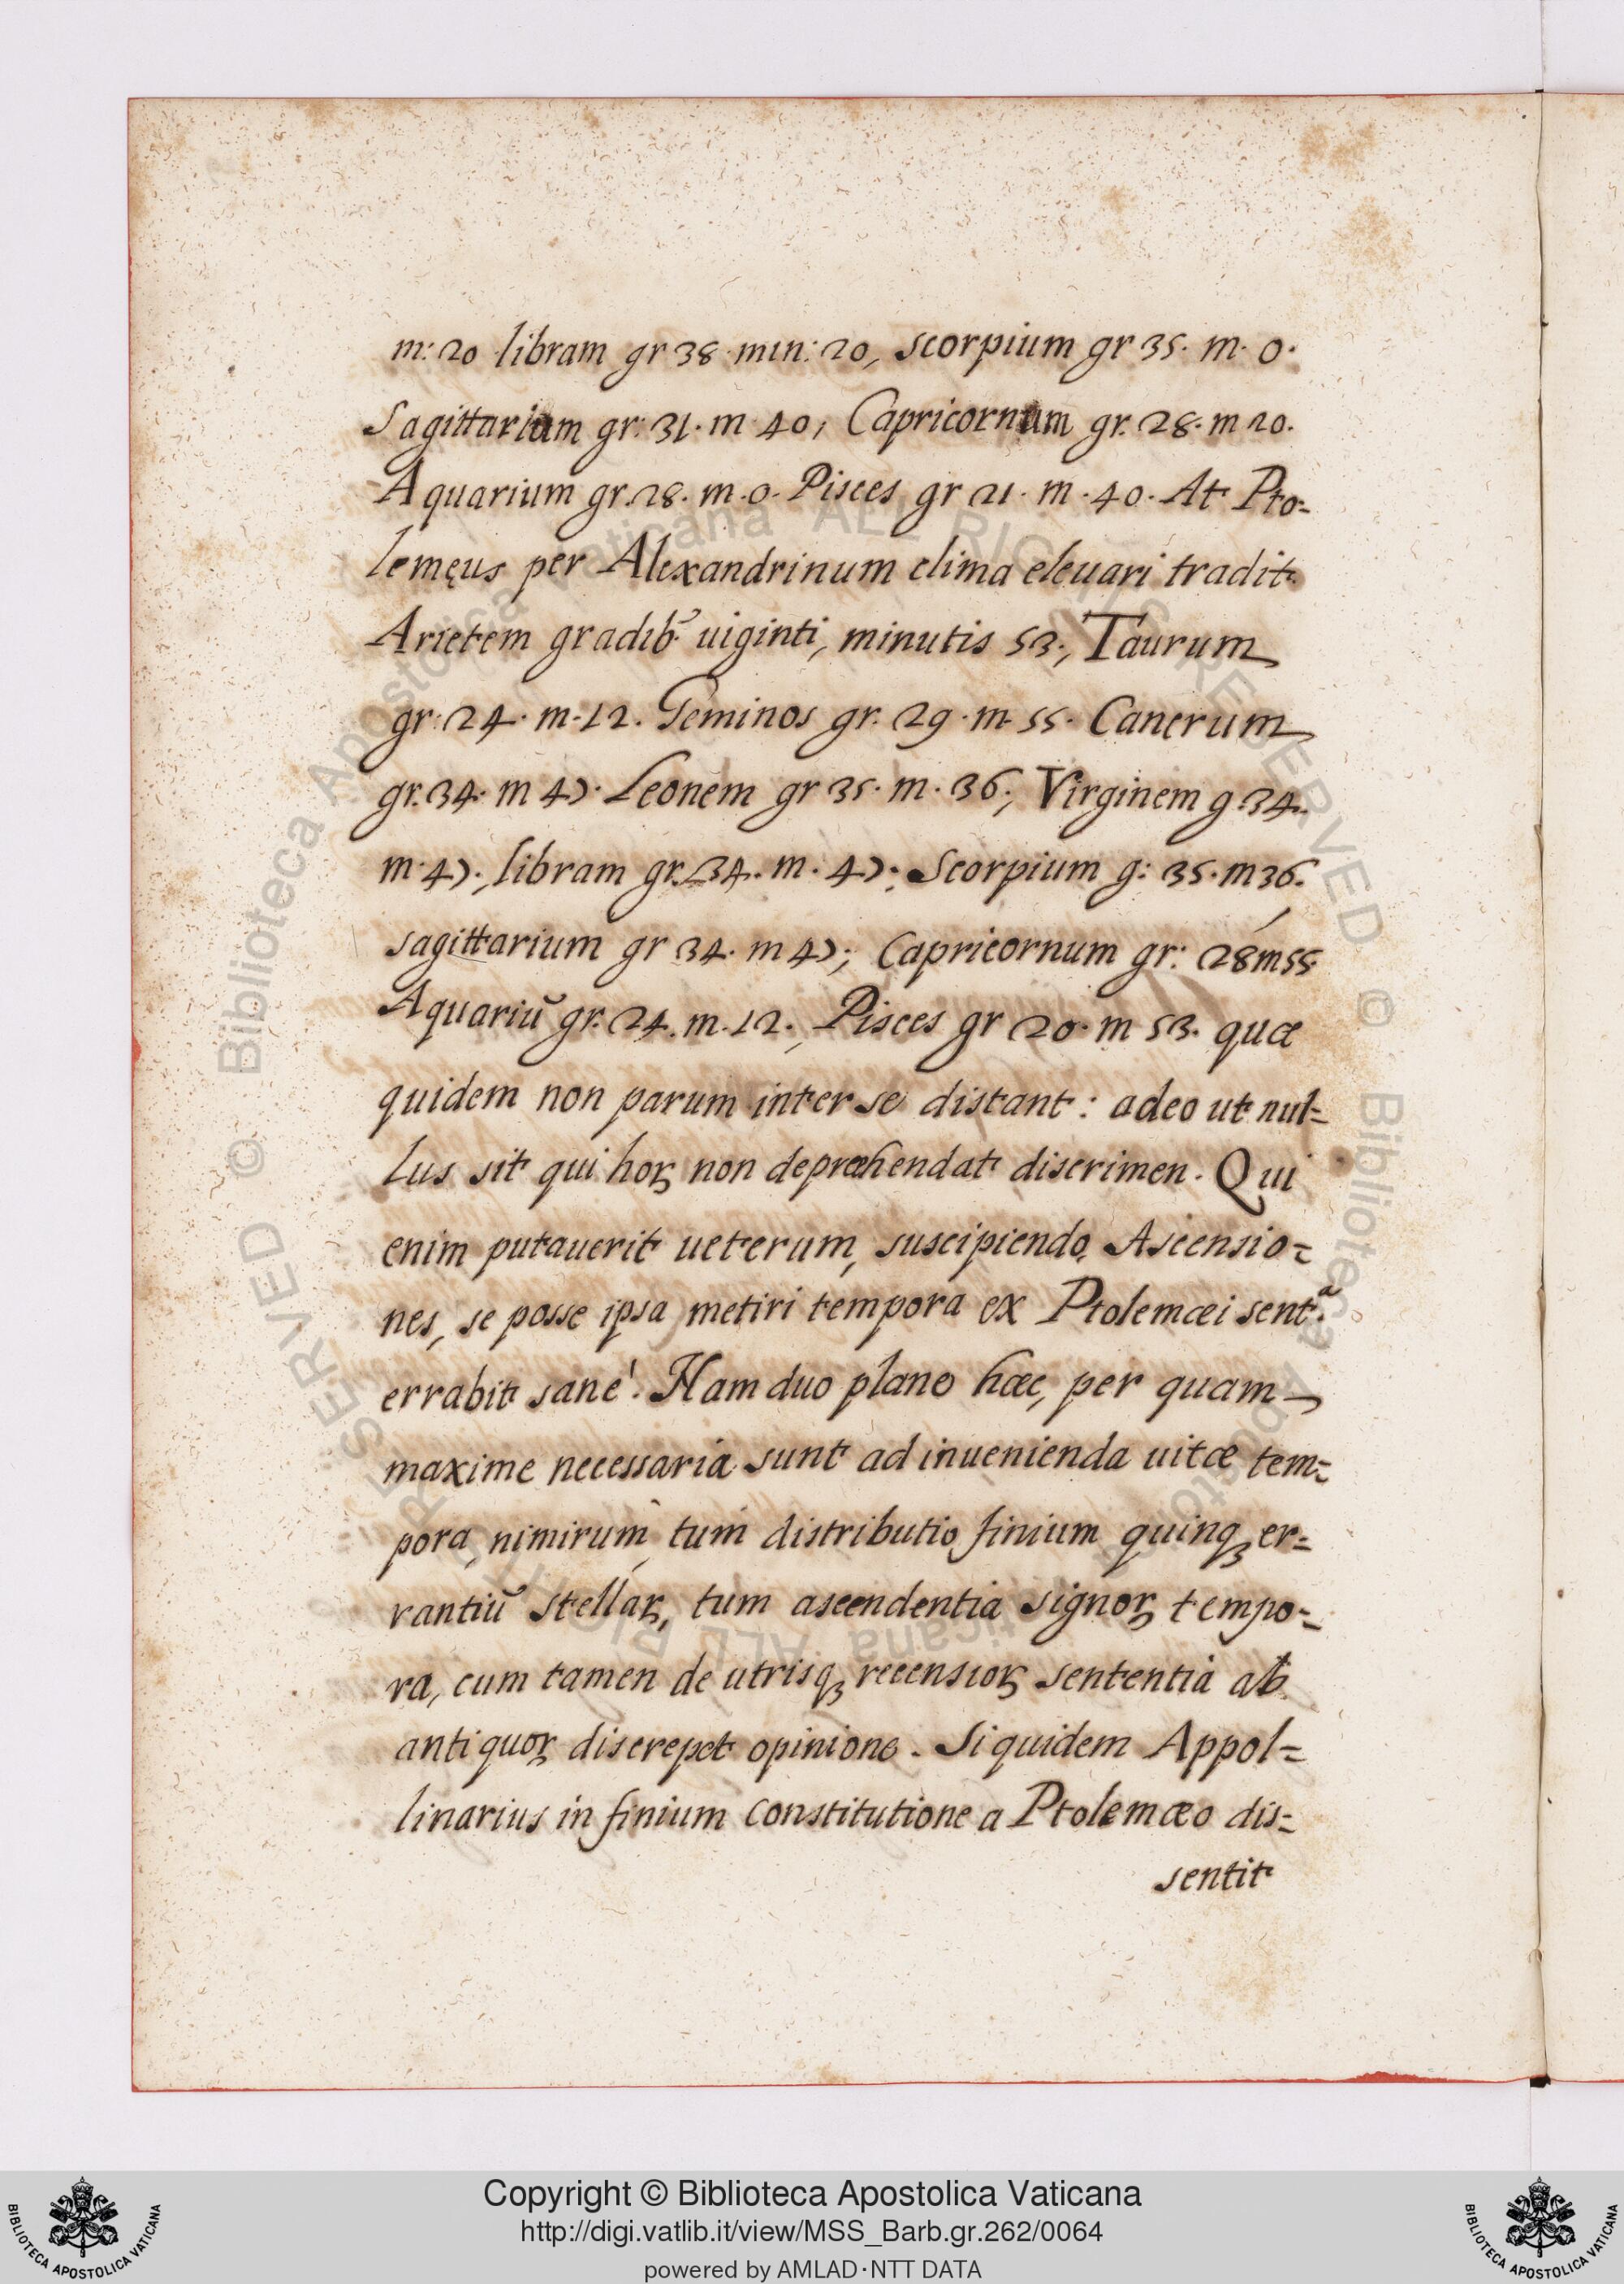 m: 20 libram gr 38 min: 20, scorpium gr 35. m. 0.
Sagittarium gr: 31. m 40, Capricornum gr. 28. m 20.
Aquarium gr. 28. m. 0. Pisces gr 21. m. 40. At Pto-
lemęus per Alexandrinum clima eleuari tradit
Arietem gradib᾽ uiginti, minutis 53., Taurum
gr: 24. m. 12. Geminos gr. 29. m 55. Cancrum
gr. 34. m 47. Leonem gr 35. m. 36., Virginem g 34.
m. 47., libram gr. 34. m. 47., Scorpium g: 35. m 36.
sagittarium gr 34. m 47; Capricornum gr: 28 m 55
Aquariũ gr. 24. m. 12., Pisces gr 20. m 53. quæ
quidem non parum inter se distant: adeo ut nul-
lus sit qui hoꝝ non depræhendat discrimen. Qui
enim putauerit ueterum, suscipiendo, Ascensio-
nes, se posse ipsa metiri tempora ex Ptolemæi sent.ª
errabit sanè. Nam duo plane hæc, per quam
maxime necessaria sunt ad inuenienda uitæ tem-
pora, nimirum tum distributio finium quinqꝫ er-
rantiũ stellaꝝ, tum ascendentia signoꝝ tempo-
ra, cum tamen de utrisqꝫ recensioꝝ sententia ab
antiquoꝝ discrepet opinione. Siquidem Appol-
linarius in finium constitutione a Ptolemæo dis-
sentit
© Biblioteca Apostolica Vaticana ALL RIGHTS RESERVED
© Biblioteca Apostolica Vaticana ALL RIGHTS RESERVED
Copyright © Biblioteca Apostolica Vaticana
http://digi.vatlib.it/view/MSS_Barb.gr.262/0064
powered by AMLAD·NTT DATA
BIBLIOTECA APOSTOLICA VATICANA
BIBLIOTECA APOSTOLICA VATICANA